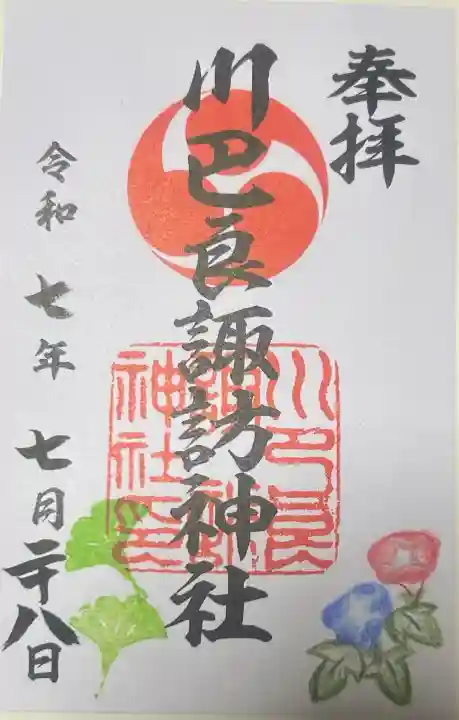 奉拝
川巴良諏訪神社
川巴良
諏訪
神社印
令和 七年 七月二十八日